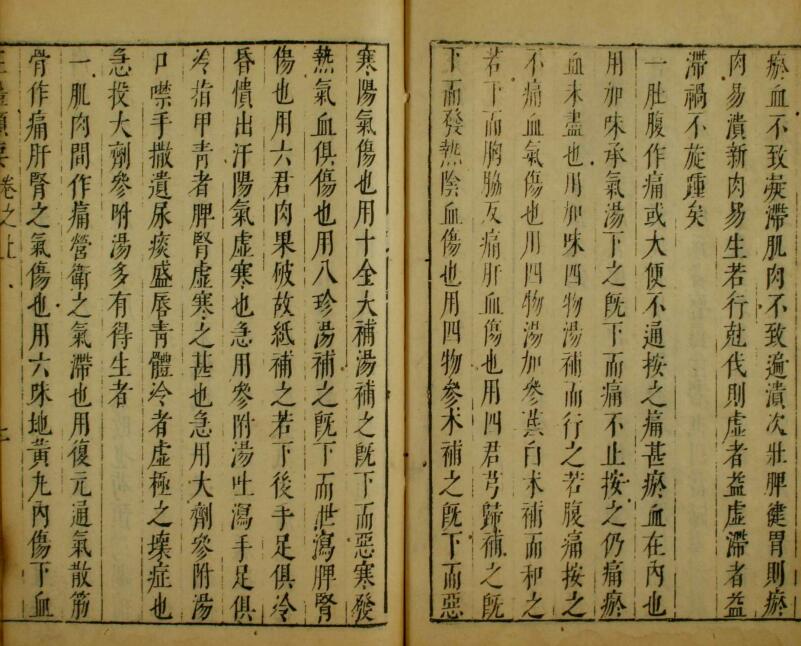 瘀血不致凝滯肌肉不致遍潰次壯脾健胃則瘀
肉易潰新肉易生若行尅伐則虛者益虛滯者益
滯禍不旋踵矣
一肚腹作痛或大便不通按之痛甚瘀血在內也
用加味承氣湯下之旣下而痛不止按之仍痛瘀
血未盡也用加味四物湯補而行之若腹痛按之
不痛血氣傷也用四物湯加參芪白朮補而和之
若下而胸脇反痛肝血傷也用四君芎歸補之旣
下而發熱陰血傷也用四物參朮補之旣下而惡
寒陽氣傷也用十全大補湯補之旣下而惡寒發
熱氣血俱傷也用八珍湯補之旣下而泄瀉脾腎
傷也用六君肉果破故紙補之若下後手足俱冷
昏憒出汗陽氣虛寒也急用參附湯吐瀉手足俱
冷指甲青者脾腎虛寒之甚也急用大劑參附湯
口噤手撒遺尿痰盛唇青體冷者虛極之壞症也
急投大劑參附湯多有得生者
一肌肉間作痛營衛之氣滯也用復元通氣散筋
骨作痛肝腎之氣傷也用六味地黃丸內傷下血
卷之上